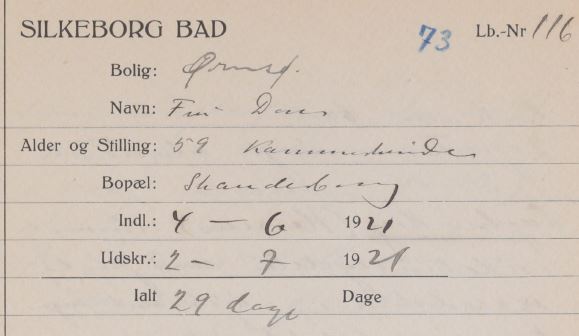 SILKEBORG BAD 73 Lb.-Nr 116
Bolig: Ørnsø.
Navn: Fru
Alder og Stilling: 59
Bopæl: Skanderborg
Indl.: 4 – 6 1921
Udskr.: 2 – 7 1921
Ialt 29 dage Dage